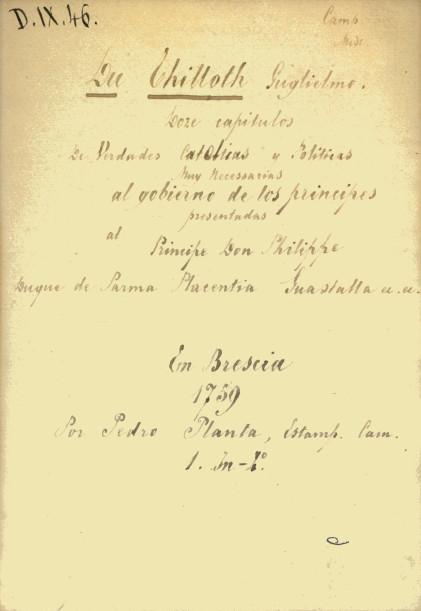 D.IX.46.
Camp
Du Thilloth Guglielmo.
Doze capitulos
De Verdades Catolicas y Politicas
Muy Necessarias
al gobierno de los principes
presentadas
al
Principe Don Philippe
Duque de Parma Placentia Guastalla
En Brescia
1759
Por Pedro Planta, Estamp. Cam.
1. In-4º.